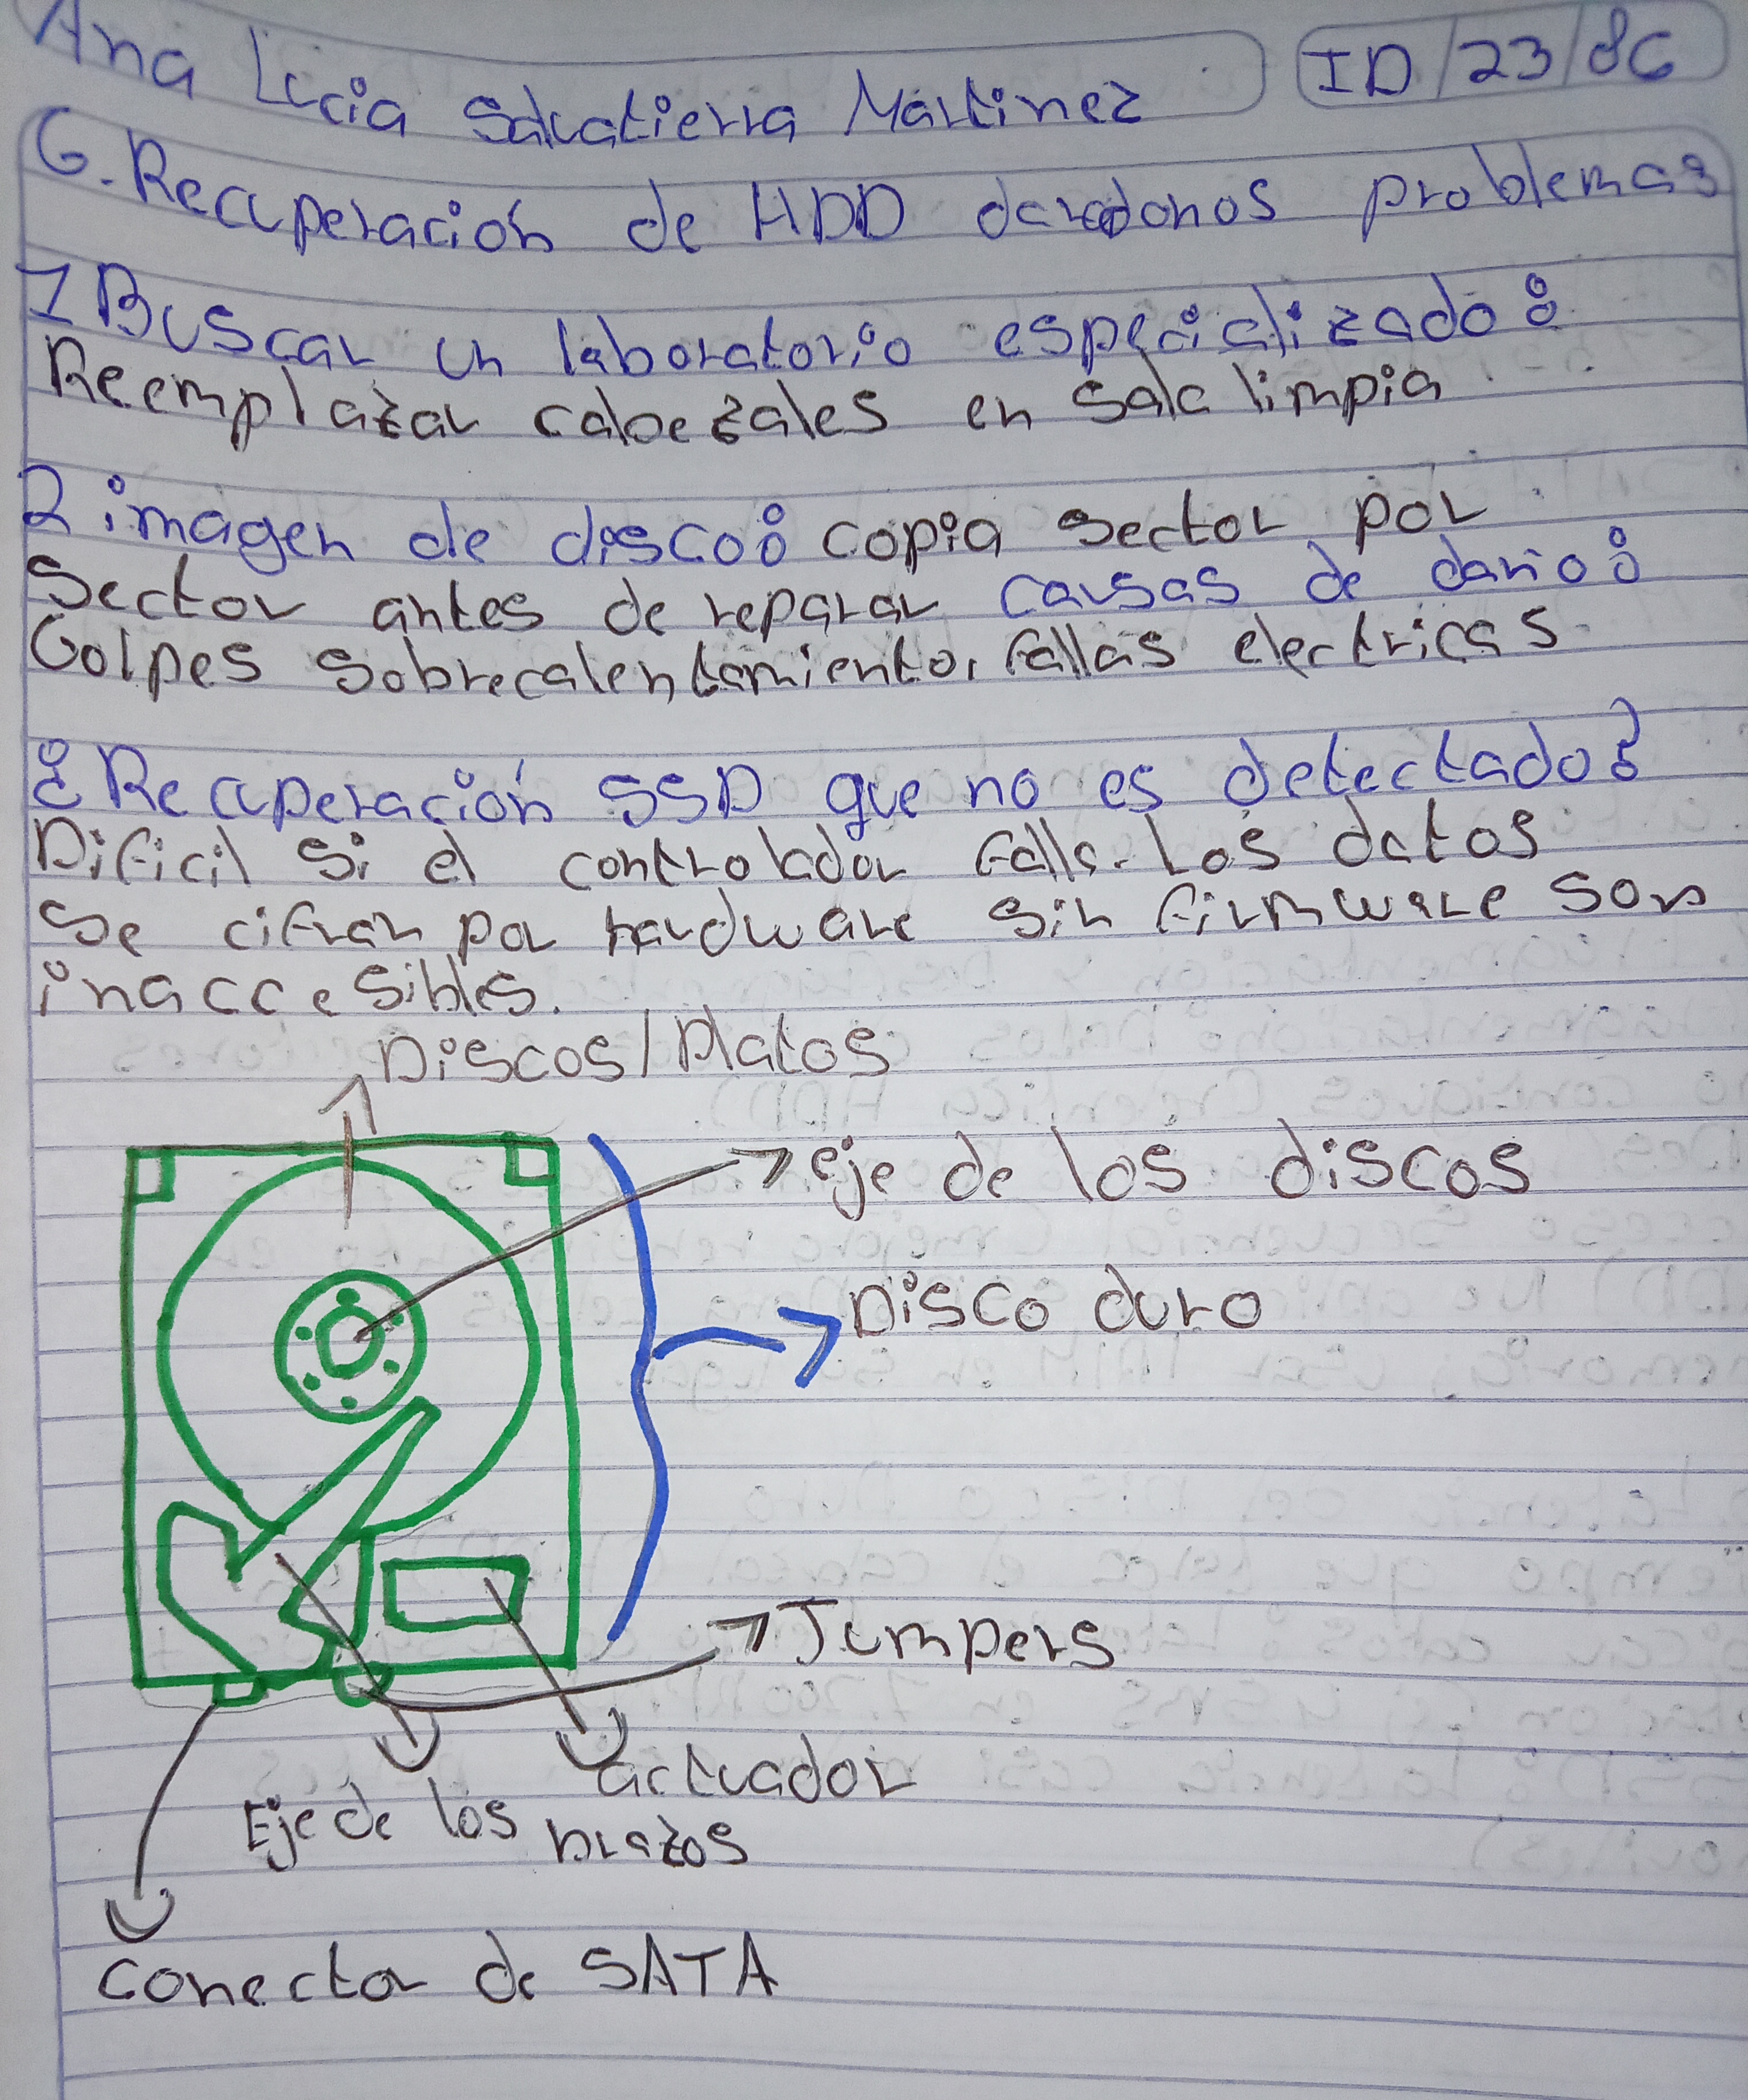 Ana Lucia Salvatierra Martinez
ID/23/86
6. Recuperación de HDD problemas
1 Buscar un laboratorio especializado:
Reemplazar cabezales en sala limpia
2 imagen de disco: copia sector por
Sector antes de reparar causas de daño:
Golpes sobrecalentamiento, fallas electricas
¿Recuperación SSD que no es detectado?
Dificil si el controlador falla. Los datos
se cifran por hardware sin firmware son
inaccesibles.
Discos/Platos
eje de los discos
Disco duro
Jumpers
actuador
Eje de los brazos
conector de SATA